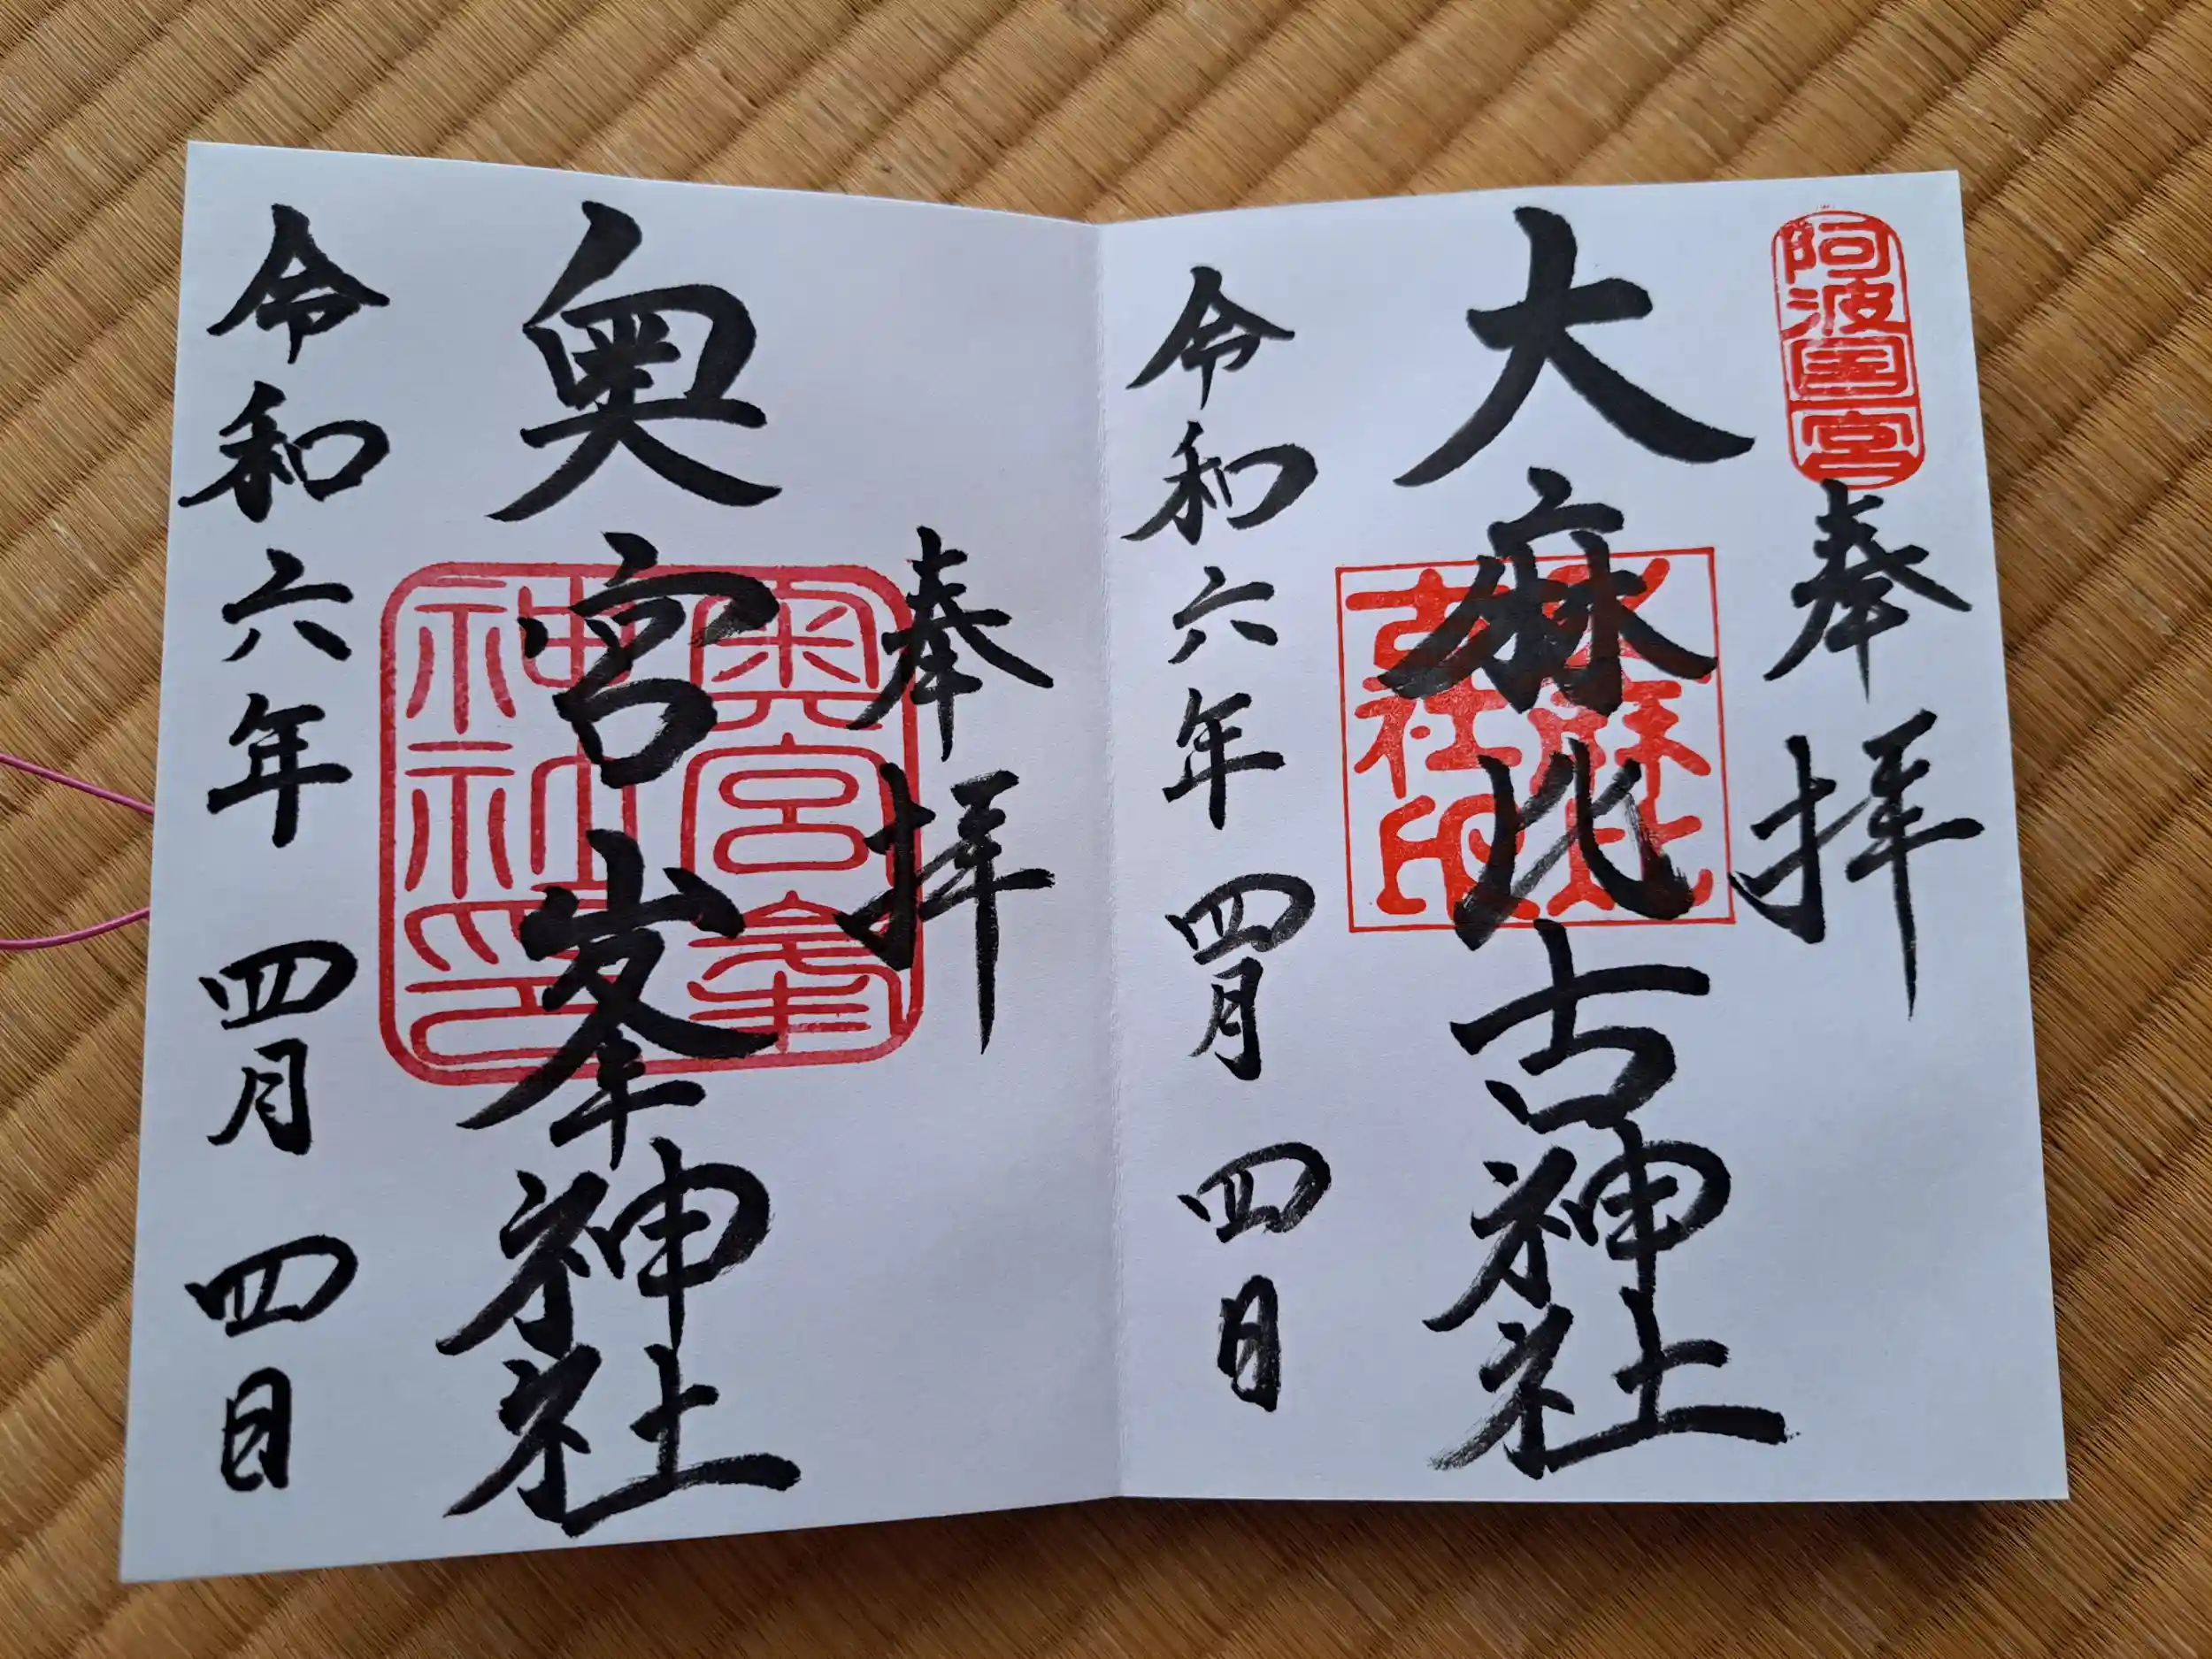 阿波國一宮
奉拝
大麻比古神社
大麻比古社印
令和六年四月四日
奉拝
奥宮峯神社
奥宮峯神社印
令和六年四月四日